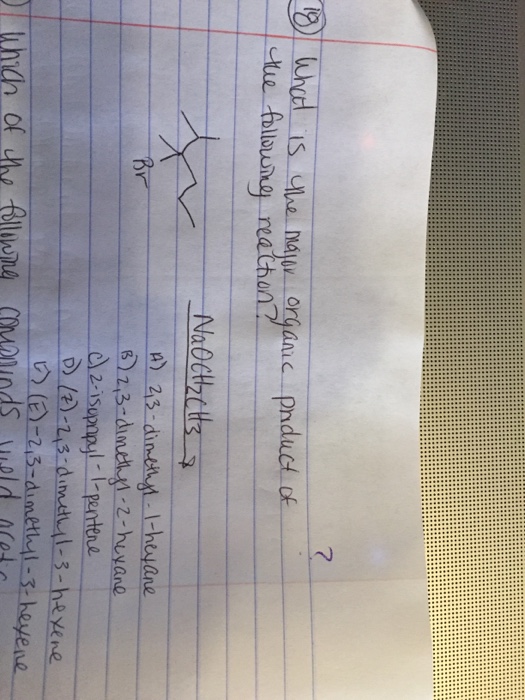 18) What is the major organic product of
the following reaction?
?
Br
NaOCH2CH3
A) 2,3-dimethyl-1-hexane
B) 2,3-dimethyl-2-hexane
C) 2-isopropyl-1-pentene
D) (Z)-2,3-dimethyl-3-hexene
E) (E)-2,3-dimethyl-3-hexene
Which of the following compounds yield